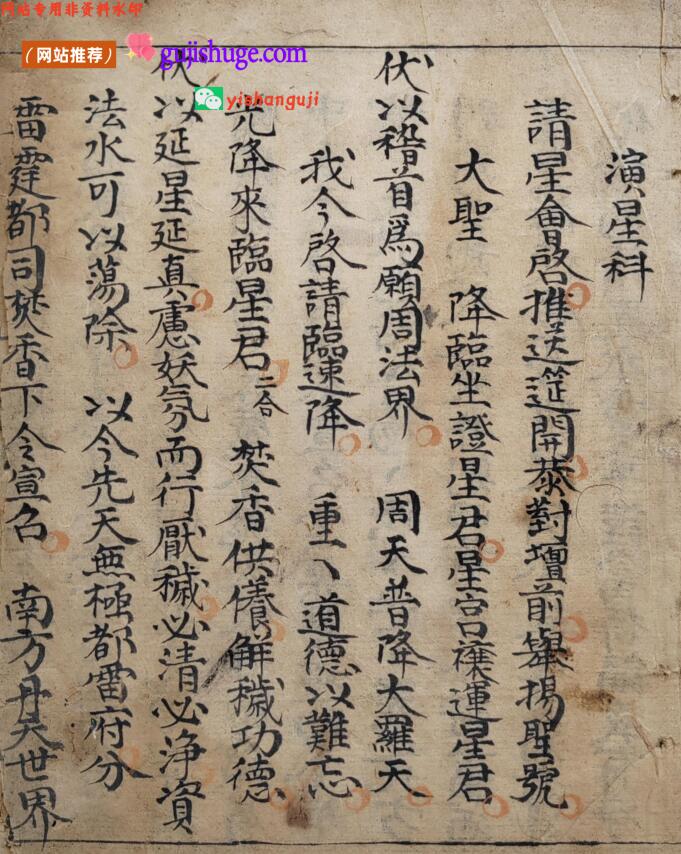 网站专用非资料水印
(网站推荐)
gujishuge.com
yishanguji
演星科
請星會啓推送筵開恭對壇前舉揚聖號
大聖 降臨坐證星君星宮禳運星君
伏以稽首爲願周法界 周天普降大羅天
我今啓請臨速降 重丶道德以難忘
光降來臨星君二合 焚香供養解穢功德
伏以延星延真慮妖氛而行厭穢必清必净資
法水可以蕩除 以今先天無極都雷府分
雷霆都司焚香下令宣召 南方丹天世界